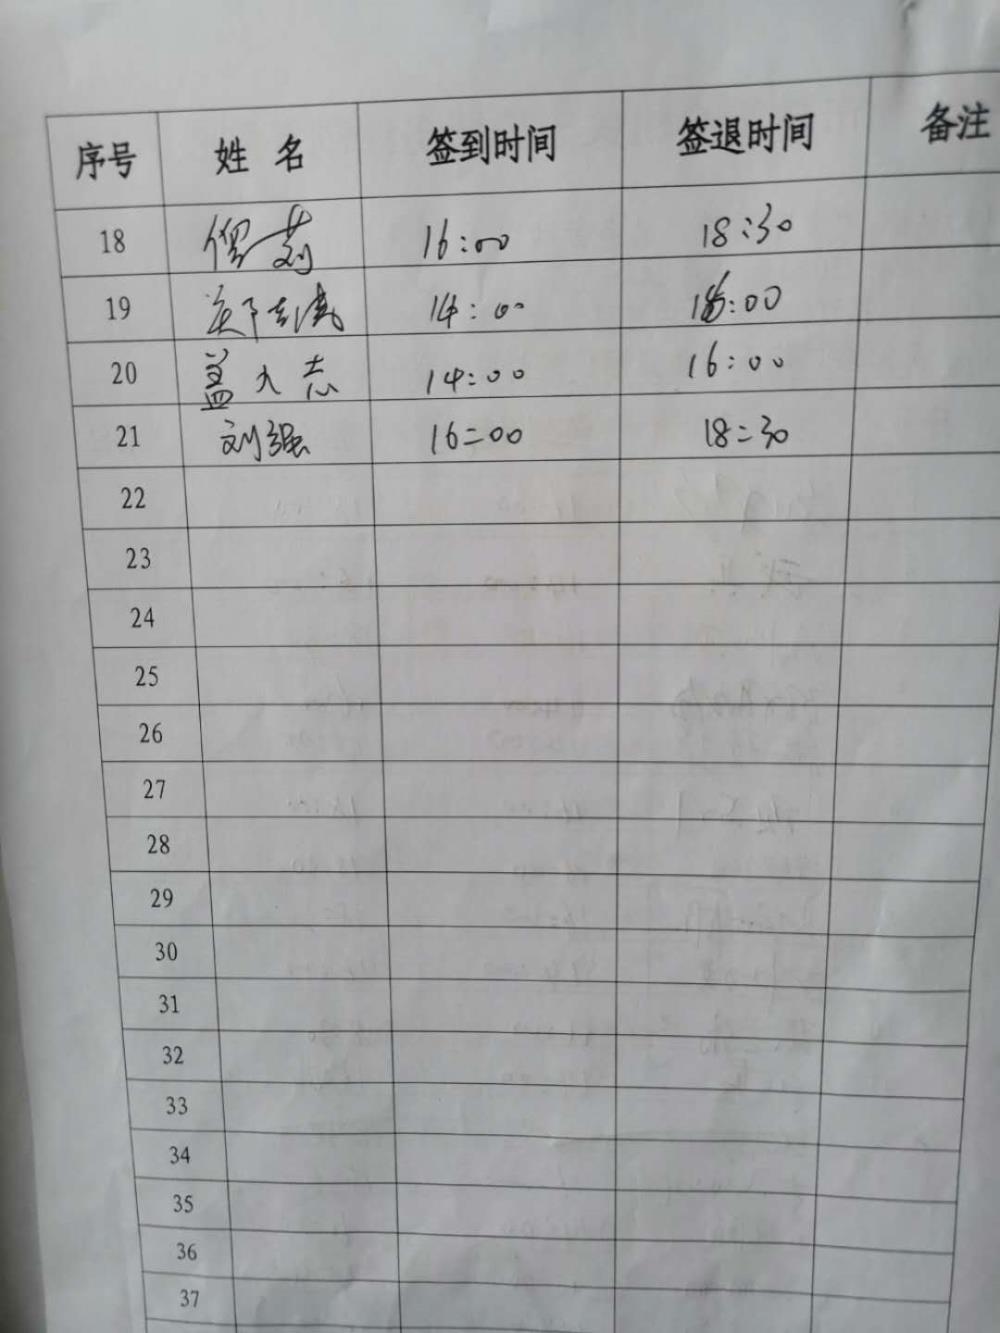 序号 姓 名 签到时间 签退时间 备注
18 16:00 18:30
19 14:00 16:00
20 盖大志 14:00 16:00
21 刘强 16:00 18:30
22
23
24
25
26
27
28
29
30
31
32
33
34
35
36
37